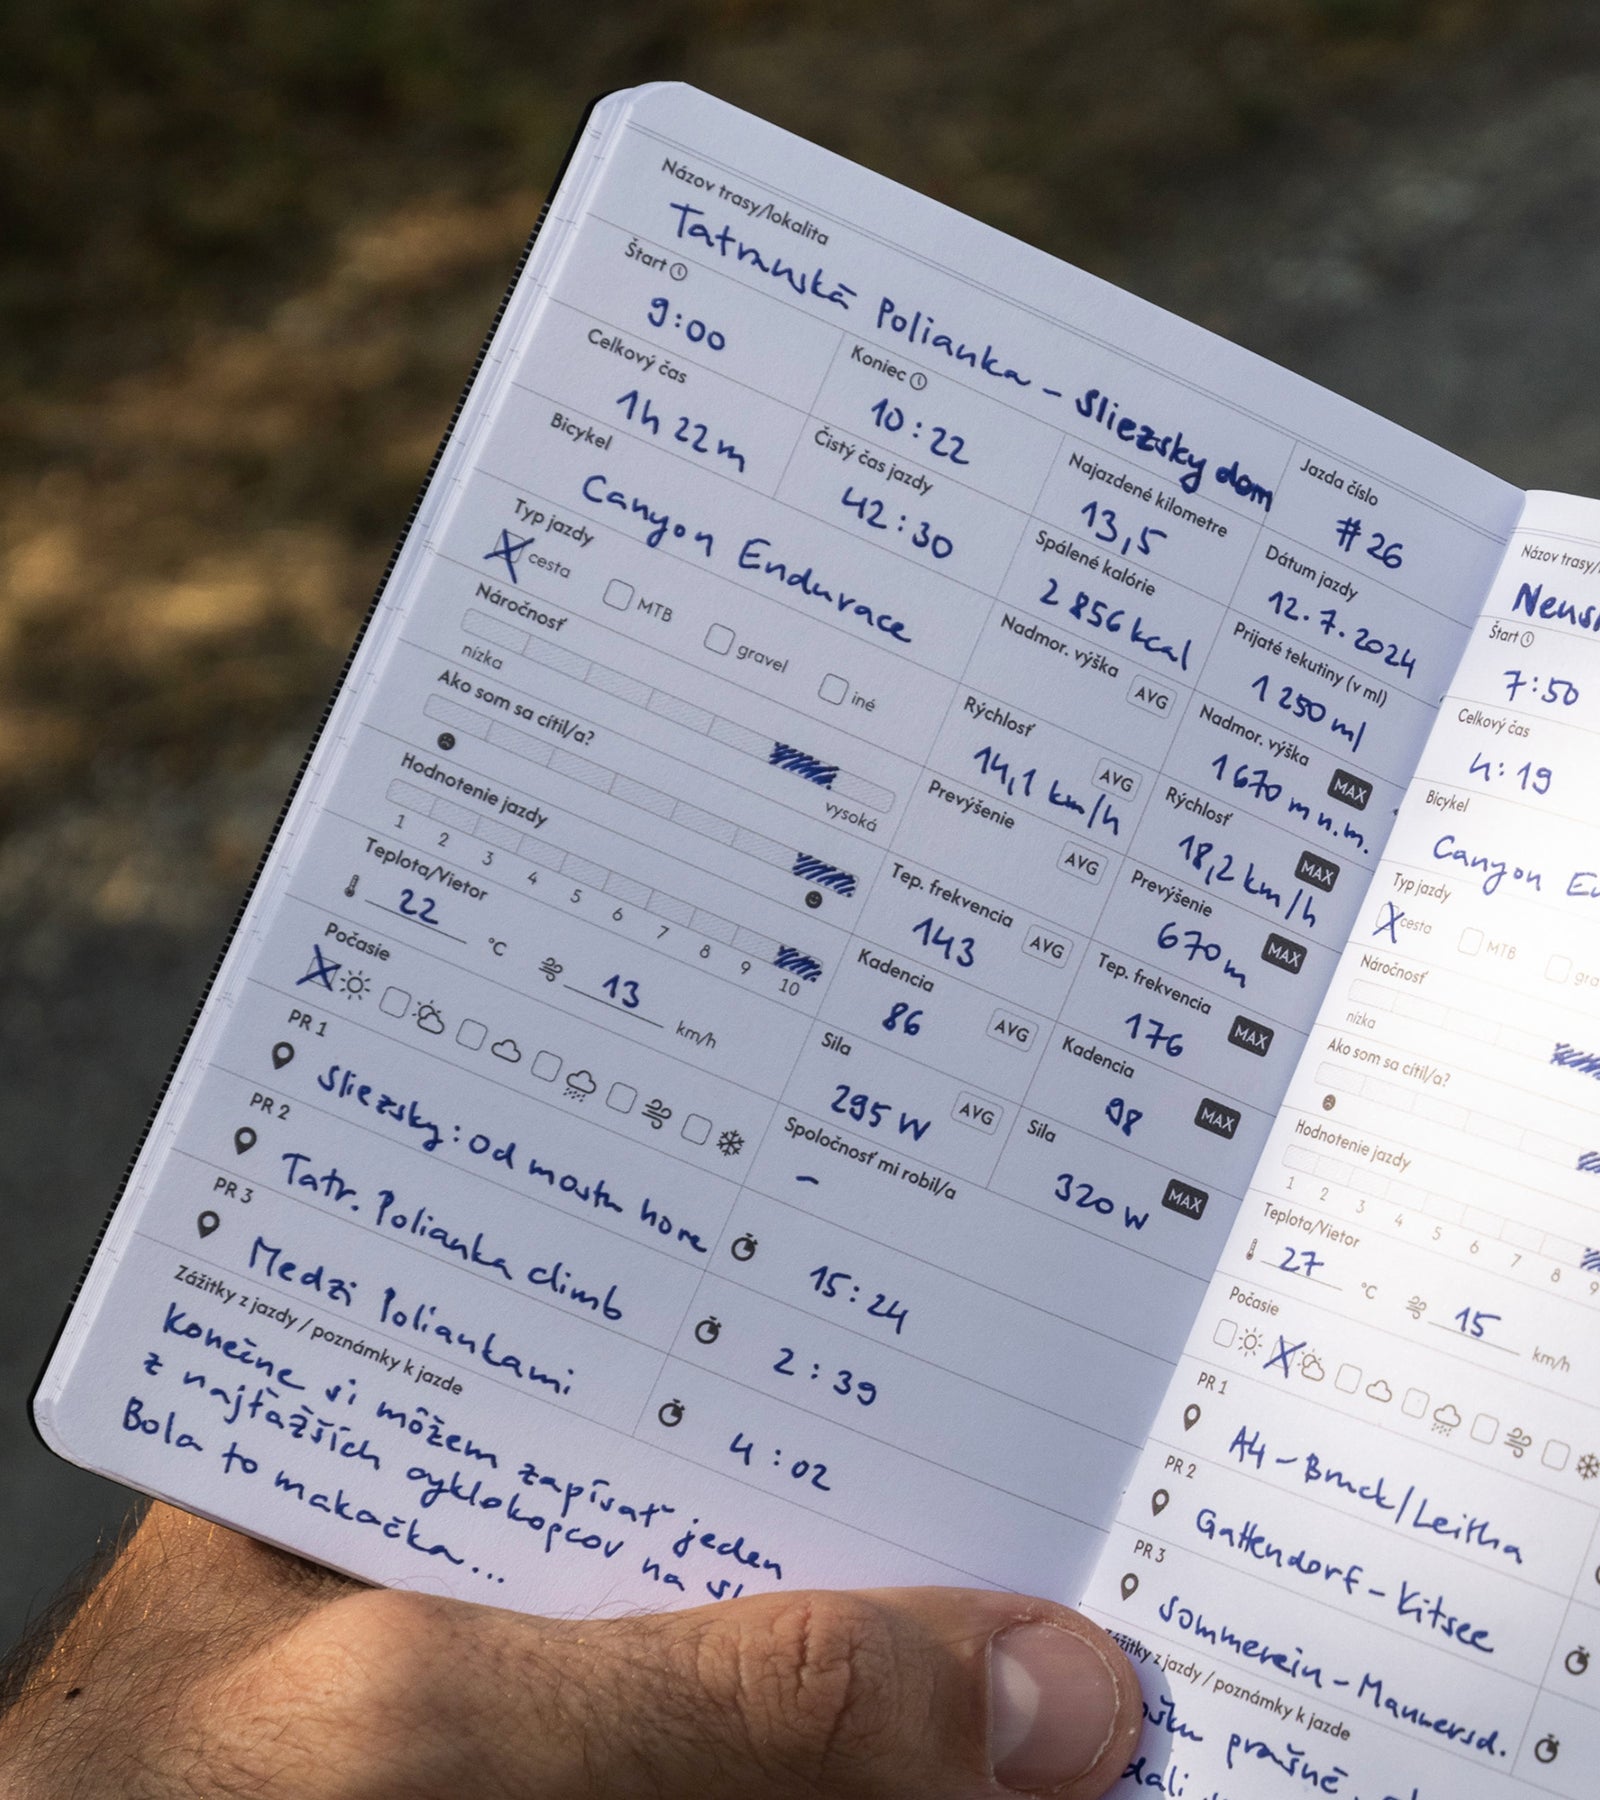 Názov trasy/lokalita
Tatranská Polianka - Sliezsky dom
Jazda číslo
# 26
Štart
9:00
Koniec
10:22
Najazdené kilometre
13,5
Dátum jazdy
12. 7. 2024
Celkový čas
1h 22m
Čistý čas jazdy
42:30
Spálené kalórie
2 856 kcal
Prijaté tekutiny (v ml)
1 250 ml
Bicykel
Canyon Endurace
Nadmor. výška AVG
Nadmor. výška MAX
1 670 m n.m.
Typ jazdy
cesta MTB gravel iné
Rýchlosť AVG
14,1 km/h
Rýchlosť MAX
18,2 km/h
Náročnosť
nízka vysoká
Prevýšenie AVG
Prevýšenie MAX
670 m
Ako som sa cítil/a?
Tep. frekvencia AVG
143
Tep. frekvencia MAX
176
Hodnotenie jazdy
1 2 3 4 5 6 7 8 9 10
Kadencia AVG
86
Kadencia MAX
98
Teplota/Vietor
22 °C 13 km/h
Sila AVG
295 W
Sila MAX
320 W
Počasie
Spoločnosť mi robil/a
-
PR 1
Sliezsky: Od mosta hore
15:24
PR 2
Tatr. Polianka climb
2:39
PR 3
Medzi Poliankami
4:02
Zážitky z jazdy / poznámky k jazde
Konečne si môžem zapísať jeden
z najťažších cyklokopcov na
Bola to makačka...
Názov trasy/
Štart
7:50
Celkový čas
4:19
Bicykel
Canyon
Typ jazdy
cesta MTB
Náročnosť
nízka
Ako som sa cítil/a?
Hodnotenie jazdy
1 2 3 4 5 6 7 8 9
Teplota/Vietor
27 °C 15 km/h
Počasie
PR 1
A4 - Bruck/Leitha
PR 2
Gattendorf - Kitsee
PR 3
Sommerein - Mannersd.
Zážitky z jazdy / poznámky k jazde